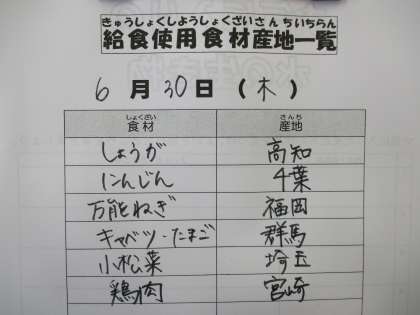 きゅうしょくしようしょくざいさんちいちらん
給食使用食材産地一覧
6月30日(木)
しょくざい さんち
食材 産地
しょうが 高知
にんじん 千葉
万能ねぎ 福岡
キャベツ・たまご 群馬
小松菜 埼玉
鶏肉 宮崎